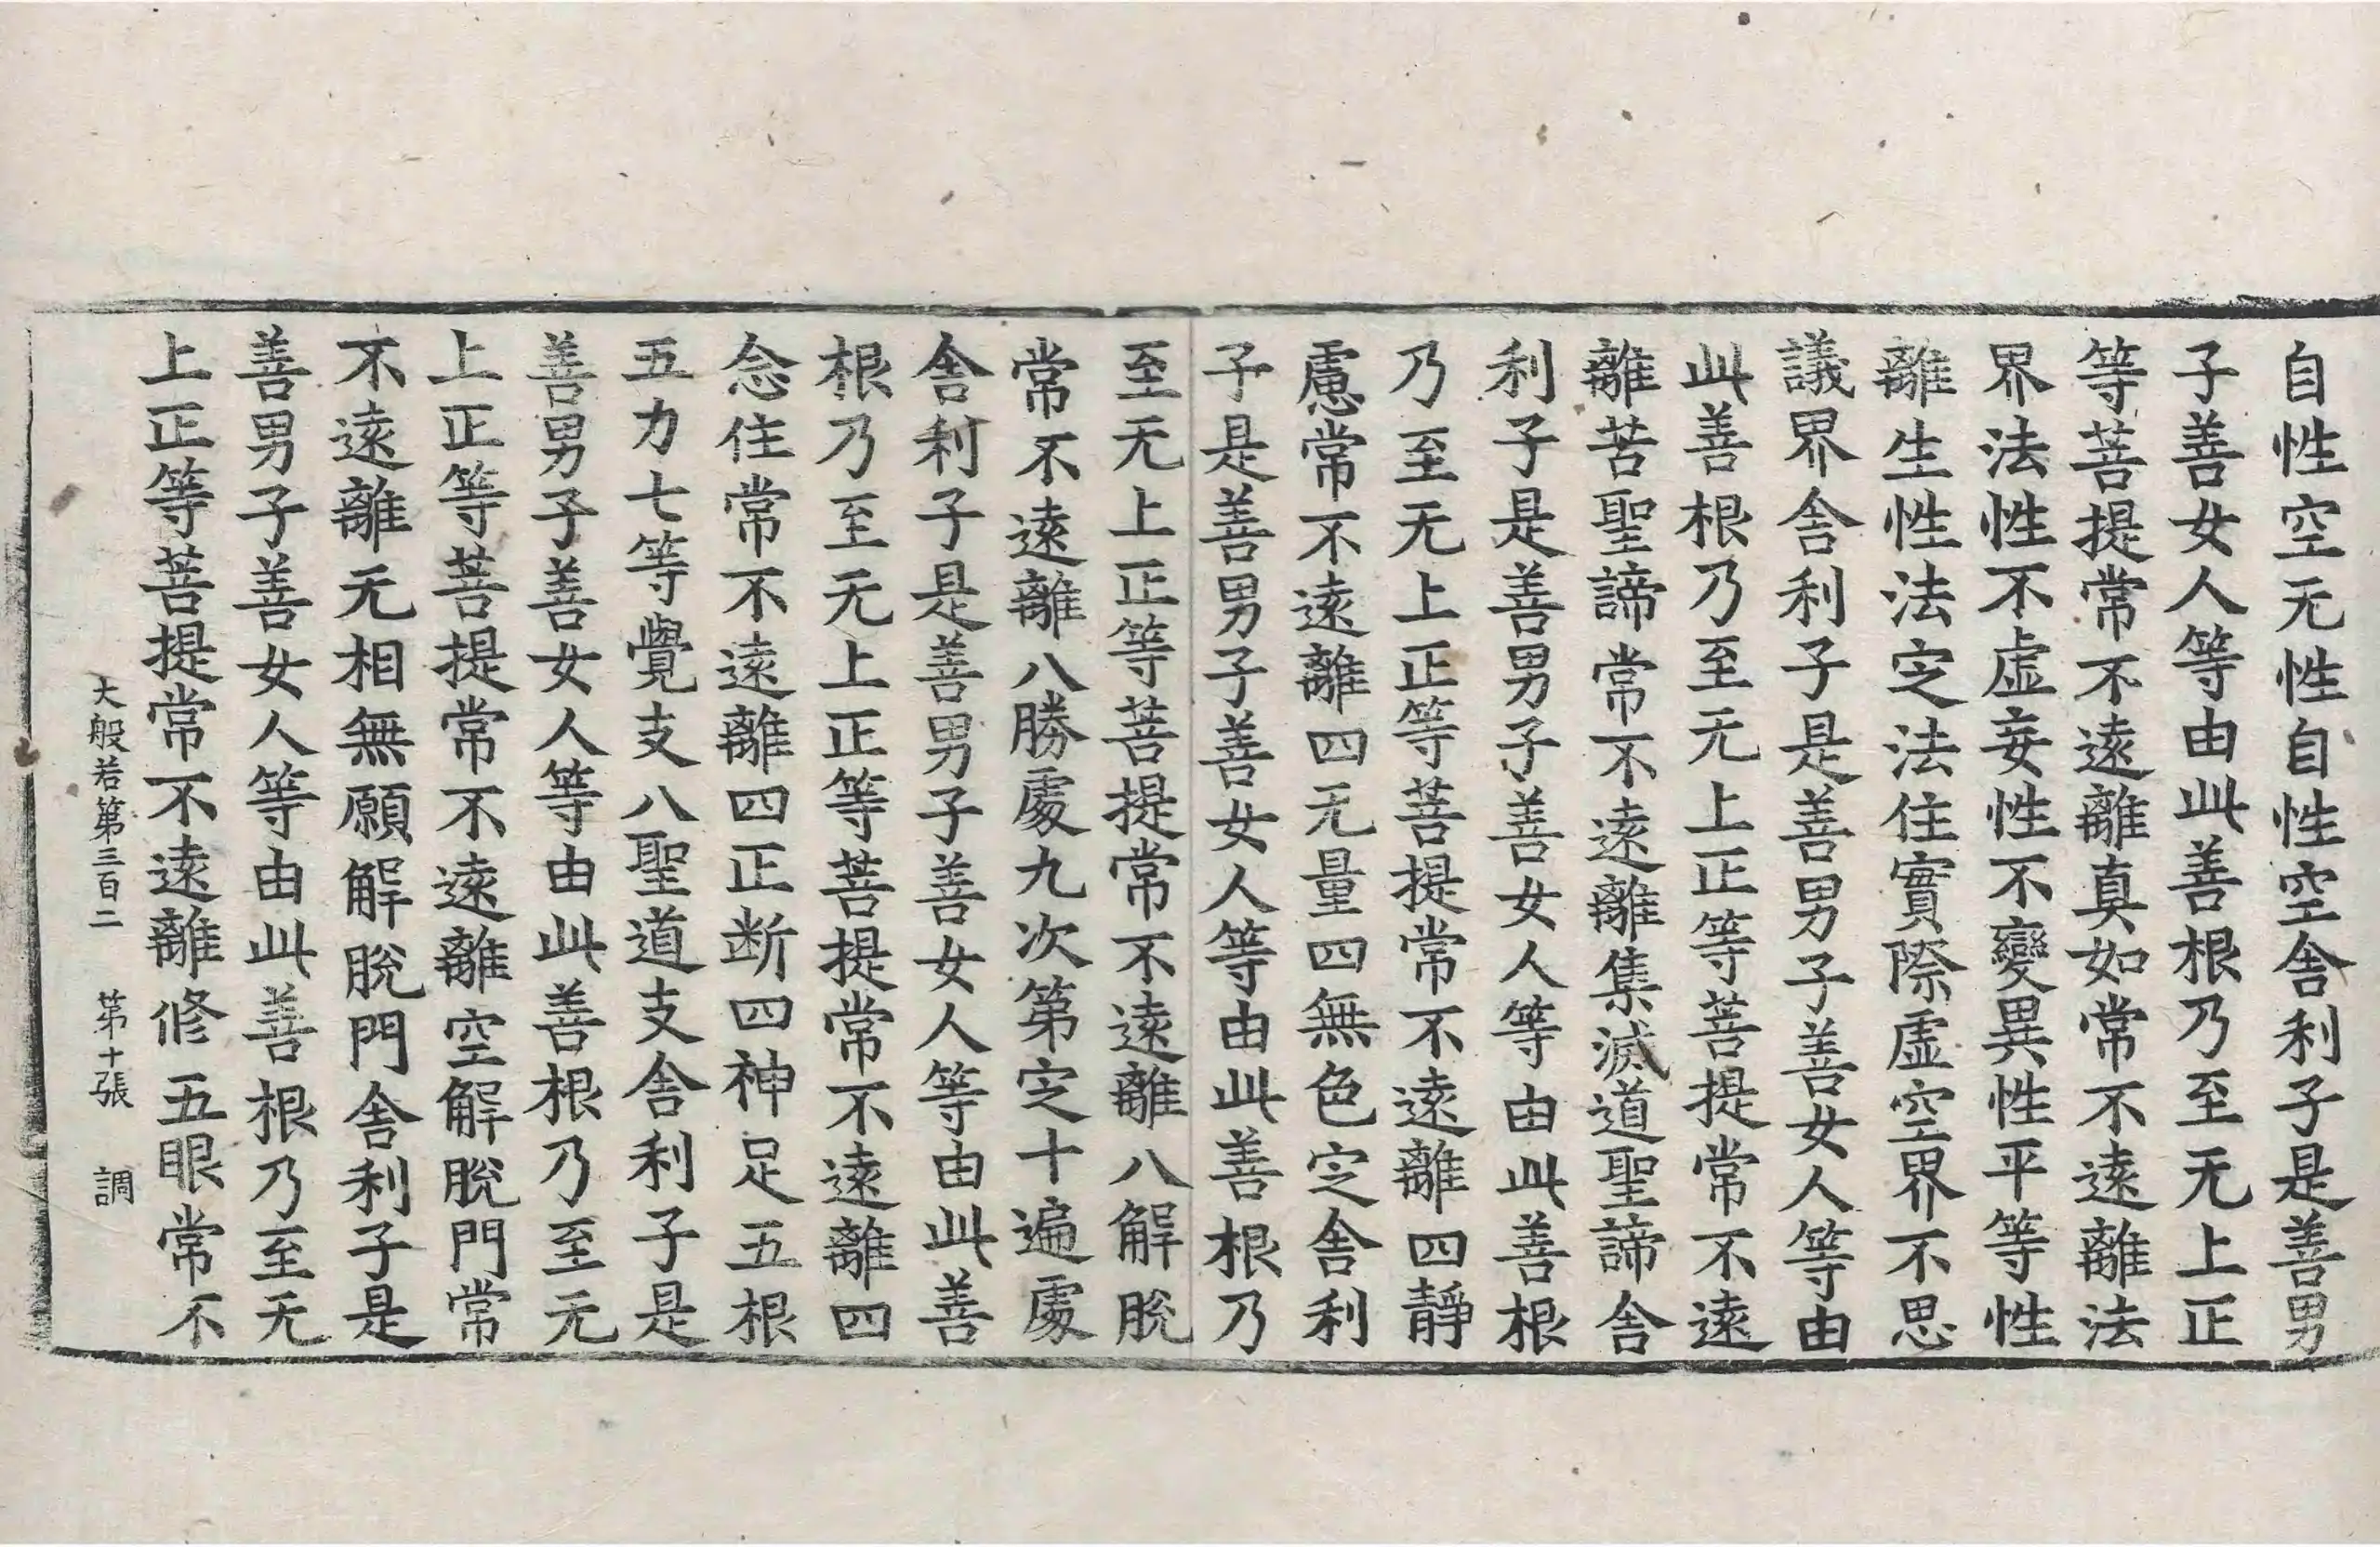 自性空无性自性空舎利子是善男
子善女人等由此善根乃至无上正
等菩提常不遠離真如常不遠離法
界法性不虚妄性不變異性平等性
離生性法定法住實際虚空界不思
議界舎利子是善男子善女人等由
此善根乃至无上正等菩提常不遠
離苦聖諦常不遠離集滅道聖諦舎
利子是善男子善女人等由此善根
乃至无上正等菩提常不遠離四靜
慮常不遠離四无量四無色定舎利
子是善男子善女人等由此善根乃
至无上正等菩提常不遠離八解脫
常不遠離八勝處九次第定十遍處
舎利子是善男子善女人等由此善
根乃至无上正等菩提常不遠離四
念住常不遠離四正断四神足五根
五力七等覺支八聖道支舎利子是
善男子善女人等由此善根乃至无
上正等菩提常不遠離空解脫門常
不遠離无相無願解脫門舎利子是
善男子善女人等由此善根乃至无
上正等菩提常不遠離修五眼常不
大般若第三百二 第十張 調